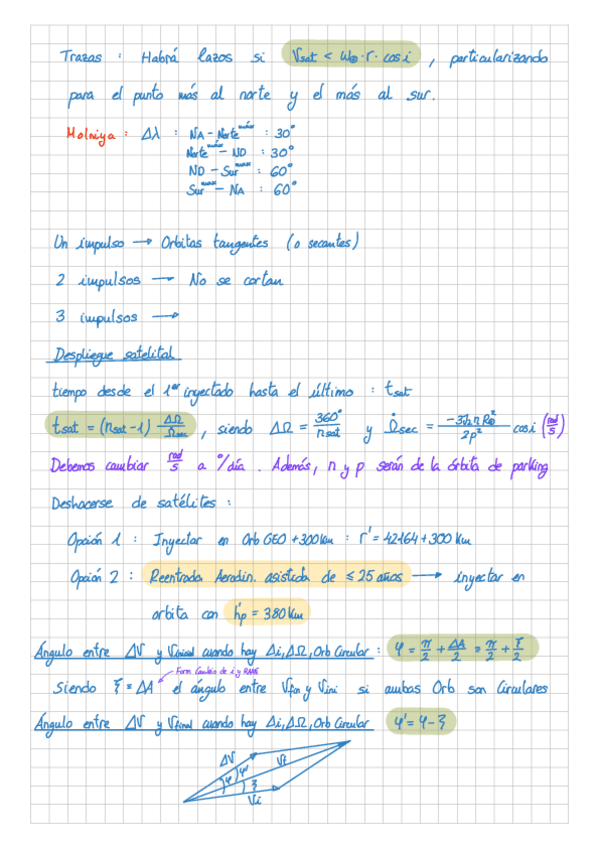 Trazas : Habrá lazos si Vsat < ω⊕ · r · cos i , particularizando
para el punto más al norte y el más al sur.
Molniya : Δλ : NA - Norte^máx : 30°
Norte^máx - ND : 30°
ND - Sur^max : 60°
Sur^max - NA : 60°
Un impulso → Orbitas tangentes (o secantes)
2 impulsos → No se cortan
3 impulsos →
Despliegue satelital
tiempo desde el 1er inyectado hasta el último : tsat
tsat = (nsat - 1) ΔΩ/Ω̇sec , siendo ΔΩ = 360°/nsat y Ω̇sec = -3J2 n R⊕²/2p² cos i (rad/s)
Debemos cambiar rad/s a °/día . Además, n y p serán de la órbita de parking
Deshacerse de satélites :
Opción 1 : Inyectar en Orb GEO + 300 km : r' = 42164 + 300 km
Opción 2 : Reentrada Aerodin. asistida de ≤ 25 años → inyectar en
orbita con h'p = 380 km
Ángulo entre ΔV y Vinicial cuando hay Δi, ΔΩ, Orb Circular : φ = π/2 + ΔA/2 = π/2 + ξ/2
Form Cambio de i y RAAN
Siendo ξ ≡ ΔA el ángulo entre Vfin y Vini si ambas Orb son Circulares
Ángulo entre ΔV y Vfinal cuando hay Δi, ΔΩ, Orb Circular φ' = φ - ξ
ΔV
Vf
φ φ'
ξ
Vi